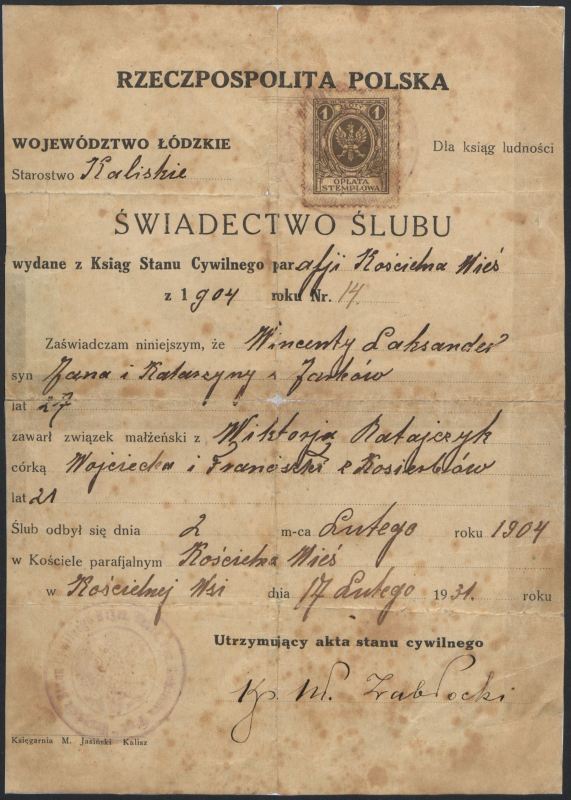 RZECZPOSPOLITA POLSKA
1 1
OPŁATA
STEMPLOWA
WOJEWÓDZTWO ŁÓDZKIE
Dla ksiąg ludności
Starostwo Kaliskie
ŚWIADECTWO ŚLUBU
wydane z Ksiąg Stanu Cywilnego parafji Kościelna Wieś
z 1904 roku Nr. 14.
Zaświadczam niniejszym, że Wincenty Laksander
syn Jana i Katarzyny z Janków
lat 27
zawarł związek małżeński z Wiktorja Ratajczyk
córką Wojciecha i Franciszki z
lat 21
Ślub odbył się dnia 2 m-ca Lutego roku 1904
w Kościele parafjalnym Kościelna Wieś
w Kościelnej Wsi dnia 17 Lutego 1931. roku
Utrzymujący akta stanu cywilnego
W. Zabłocki
Księgarnia M. Jasiński Kalisz